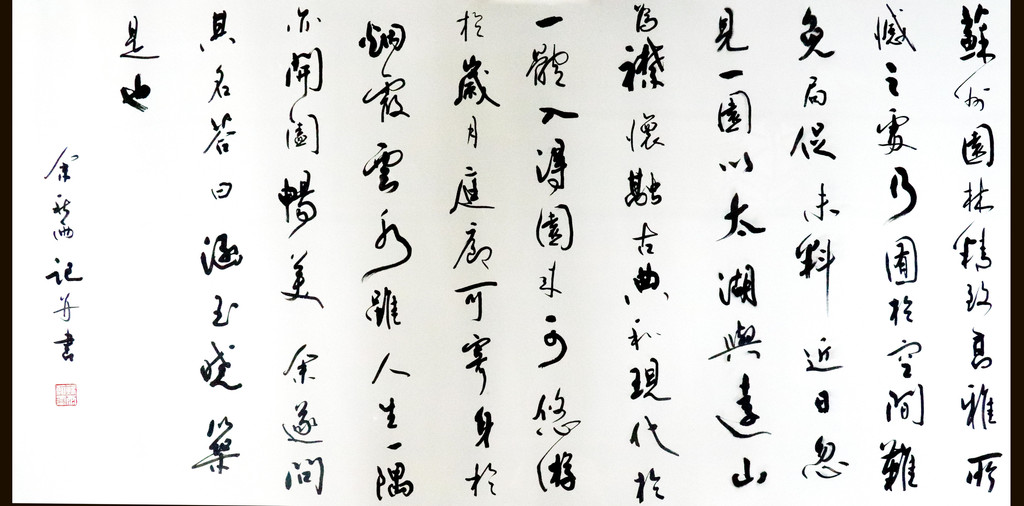 蘇州園林精致高雅所
憾之處乃囿於空間難
免局促未料近日忽
見一園以太湖與遠山
為襟懷融古典和現代於
一體入得園來可悠游
於歲月庭廊可寄身於
烟霞雲水雖人生一隅
亦開闔暢美余遂問
其名答曰涵玉晓築
是也
余秋雨記并書